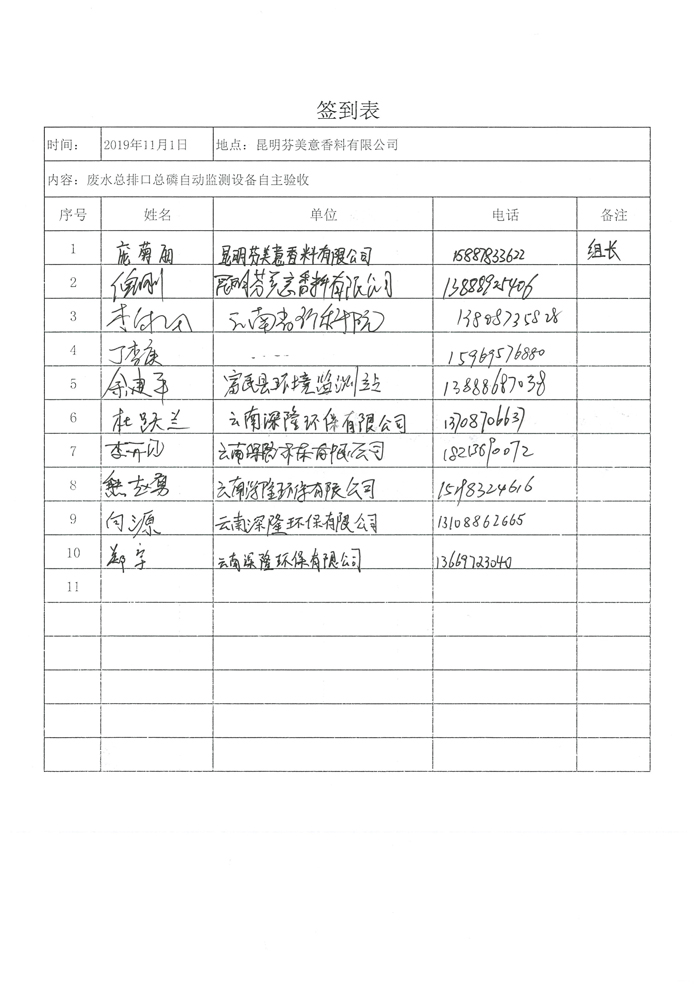 签到表
时间： 2019年11月1日 地点：昆明芬美意香料有限公司
内容：废水总排口总磷自动监测设备自主验收
序号 姓名 单位 电话 备注
1 昆明芬美意香料有限公司 15887833622 组长
2 昆明芬美意香料有限公司 13888925406
3 13808735828
4 丁李庚 15969576880
5 余建平 富民县环境监测站 13888687038
6 杜跃兰 云南深隆环保有限公司 13708706637
7 云南深隆环保有限公司 18213690072
8 魏赵勇 云南深隆环保有限公司 15198324616
9 向源 云南深隆环保有限公司 13108862665
10 郑宇 云南深隆环保有限公司 13669723040
11